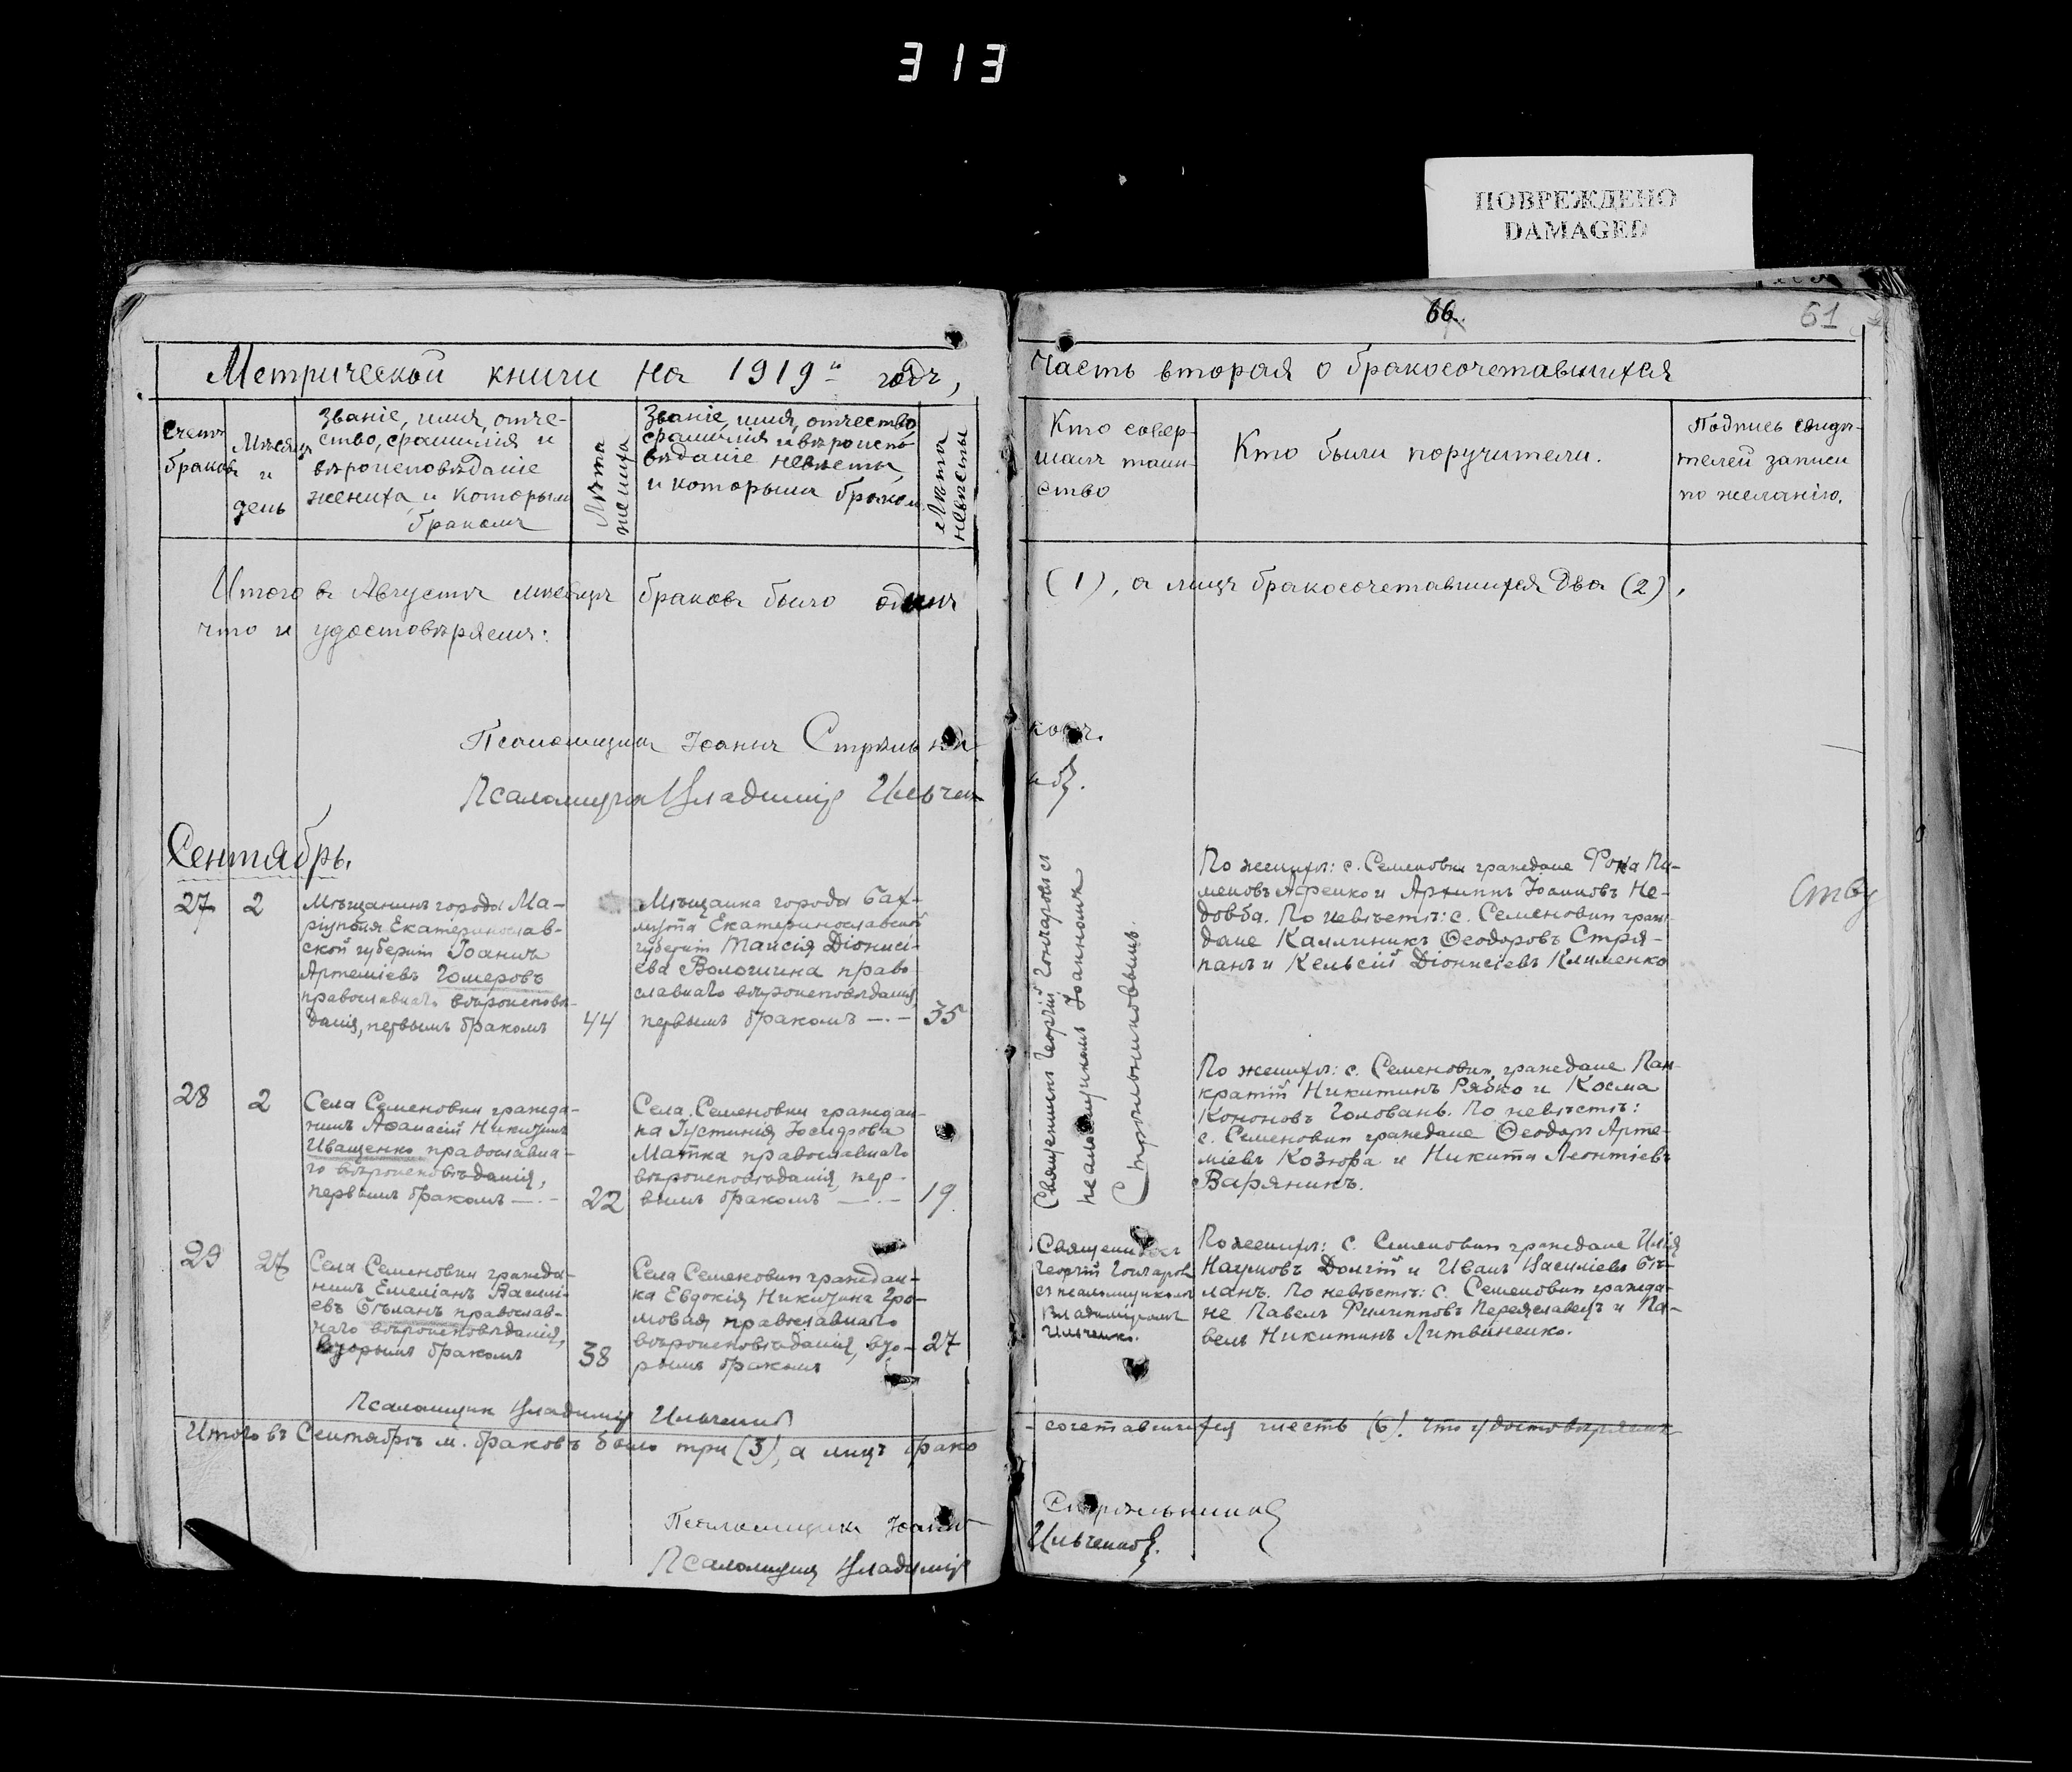 313
ПОВРЕЖДЕНО
DAMAGED
66.
61
Метрической книги на 1919й годъ,
Часть вторая о бракосочетавшихся
Счетъ
браковъ
Мѣсяцъ
и
день
Званіе, имя, отче-
ство, фамилія и
вѣроисповѣданіе
жениха, и которымъ
бракомъ
Лѣта
жениха
Званіе, имя, отчество,
фамилія и вѣроиспо-
вѣданіе невѣсты,
и которымъ бракомъ
Лѣта
невѣсты
Кто совер-
шалъ таин-
ство
Кто были поручители.
Подпись свидѣ-
телей записи
по желанію.
Итого въ Августѣ мѣсяцѣ браковъ было одинъ (1), а лицъ бракосочетавшихся два (2),
что и удостовѣряемъ:
Псаломщикъ Іоаннъ Стрѣльни-
ковъ.
Псаломщикъ Владиміръ Ильчен-
ковъ.
Сентябрь.
27
2
Мѣщанинъ города Ма-
ріуполя Екатеринослав-
ской губерніи Іоаннъ
Артеміевъ Гомеровъ
православнаго вѣроисповѣ-
данія, первымъ бракомъ
44
Мѣщанка города Бах-
мута Екатеринославской
губерніи Таисія Діонисі-
ева Волошина право-
славнаго вѣроисповѣданія,
первымъ бракомъ —.—
35
Священникъ Георгій Гончаровъ съ
псаломщикомъ Іоанномъ
Стрѣльниковымъ.
По женихѣ: с. Семеновки граждане Фока Пи-
меновъ и Архиппъ Іоанновъ Не-
довба. По невѣстѣ: с. Семеновки граж-
дане Каллиникъ Ѳеодоровъ Стря-
панъ и Кельсій Діонисіевъ Клименко
Ству
28
2
Села Семеновки гражда-
нинъ Аѳанасій Никитинъ
Иващенко православна-
го вѣроисповѣданія,
первымъ бракомъ —.—
22
Села Семеновки граждан-
ка Іустинія Іосифова
Матка православнаго
вѣроисповѣданія, пер-
вымъ бракомъ —.—
19
По женихѣ: с. Семеновки граждане Пан-
кратій Никитинъ Рябко и Косма
Кононовъ Головань. По невѣстѣ:
с. Семеновки граждане Ѳеодоръ Арте-
міевъ Козюра и Никита Леонтіевъ
Варянинъ.
29
27
Села Семеновки гражда-
нинъ Емеліанъ Васілі-
евъ Бѣланъ православ-
наго вѣроисповѣданія,
вторымъ бракомъ
38
Села Семеновки граждан-
ка Евдокія Никитина Гро-
мовая православнаго
вѣроисповѣданія, вто-
рымъ бракомъ
27
Священникъ
Георгій Гончаровъ
съ псаломщикомъ
Владиміромъ
Ильченко.
По женихѣ: с. Семеновки граждане Илія
Наумовъ Долгій и Иванъ Василіевъ Бѣ-
ланъ. По невѣстѣ: с. Семеновки гражда-
не Павелъ Филипповъ Переяславецъ и Па-
велъ Никитинъ Литвиненко.
Псаломщик Владиміръ Ильченковъ
Итого въ Сентябрѣ м. браковъ было три (3), а лицъ брако-
сочетавшихся шесть (6). что удостовѣряемъ
Псаломщикъ Іоаннъ
Стрѣльниковъ
Псаломщикъ Владиміръ
Ильченковъ.